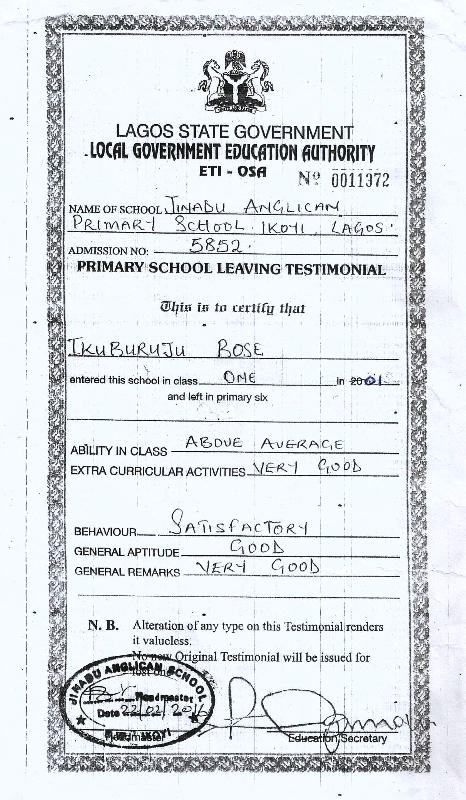 LAGOS STATE GOVERNMENT
LOCAL GOVERNMENT EDUCATION AUTHORITY
ETI - OSA
Nº 0011372
NAME OF SCHOOL JINADU ANGLICAN
PRIMARY SCHOOL IKOYI LAGOS.
ADMISSION NO: 5852.
PRIMARY SCHOOL LEAVING TESTIMONIAL
This is to certify that
IKUBURUJU BOSE
entered this school in class ONE in 2001
and left in primary six
ABILITY IN CLASS ABOVE AVERAGE
EXTRA CURRICULAR ACTIVITIES VERY GOOD
BEHAVIOUR SATISFACTORY
GENERAL APTITUDE GOOD
GENERAL REMARKS VERY GOOD
N. B. Alteration of any type on this Testimonial renders
it valueless.
No new Original Testimonial will be issued for
lost one
JINADU ANGLICAN SCHOOL
Headmaster
Date 22/02/2016
Headmaster
IKOYI
Education Secretary